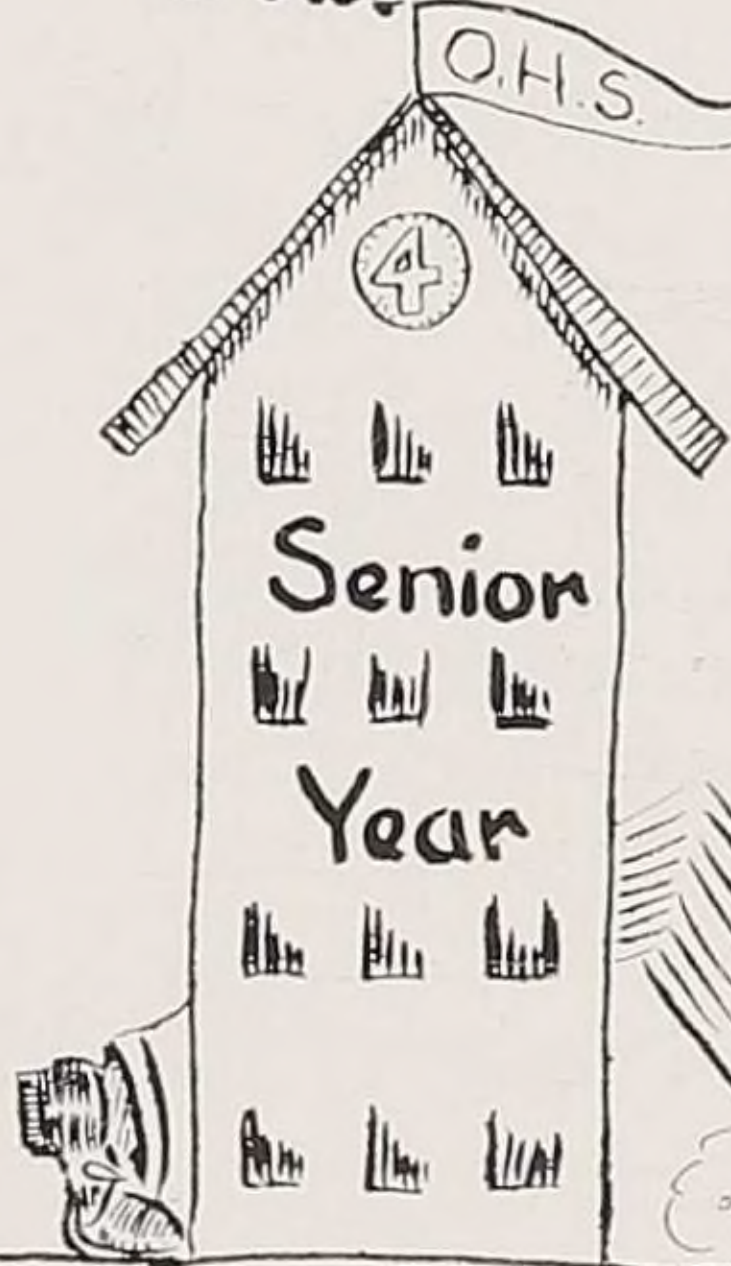 O.H.S.
4
Senior
Year